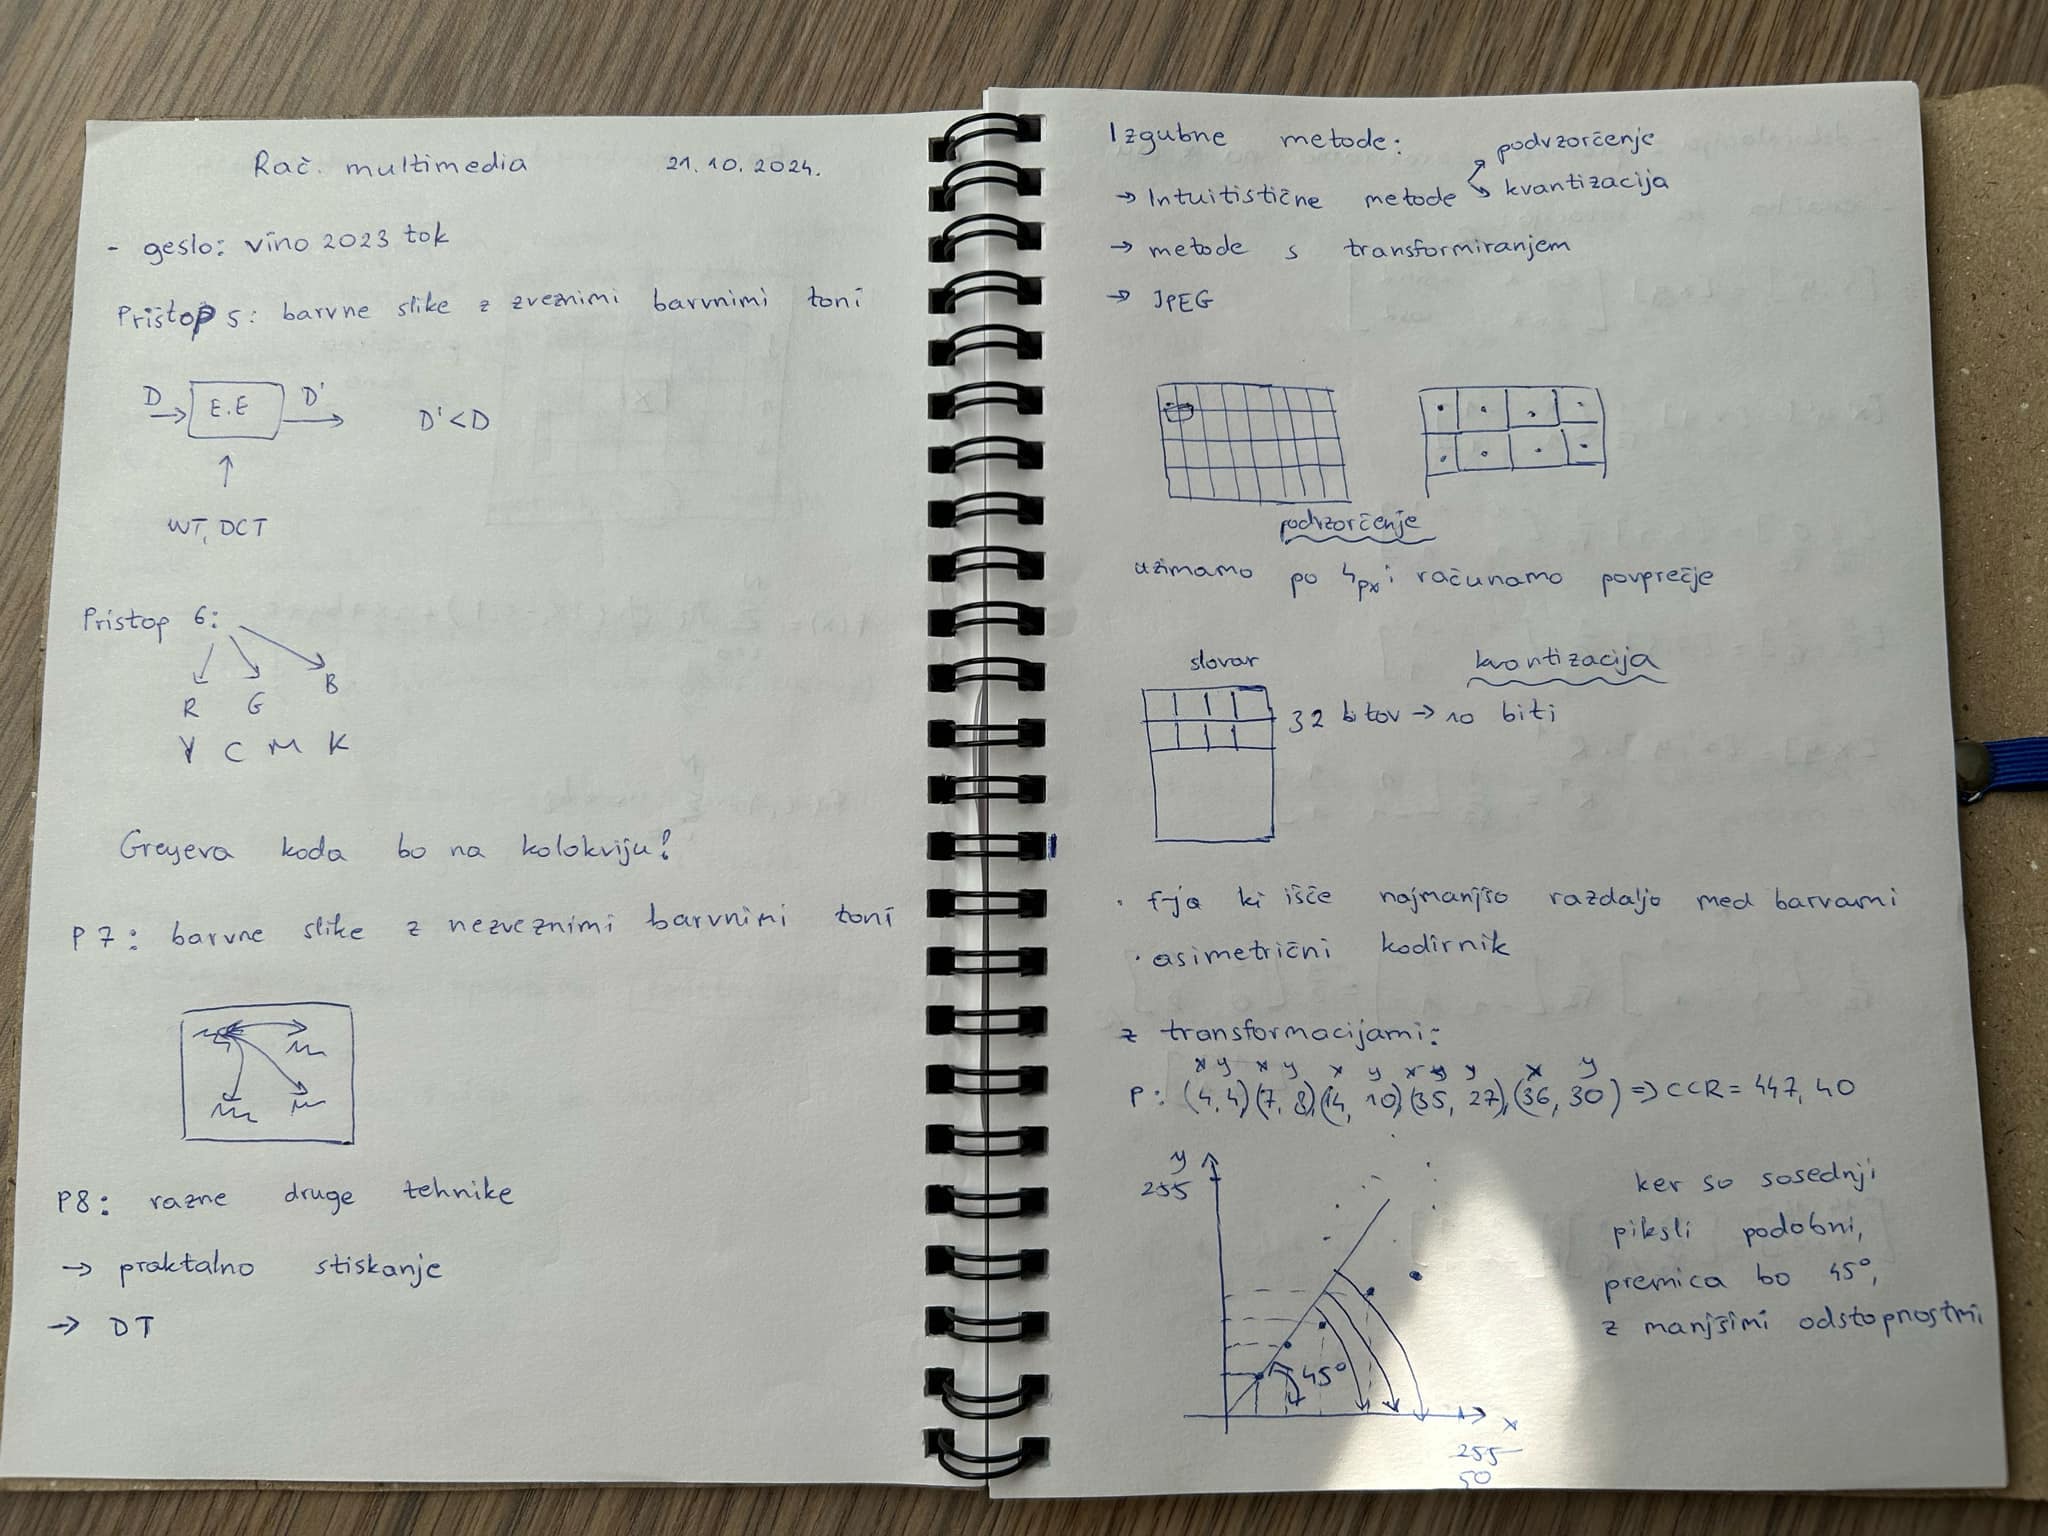 Rač. multimedia 21.10.2024.
- geslo: vino2023tok
Pristop 5: barvne slike z zveznimi barvnimi toni
D E.E D' D'<D
WT, DCT
Pristop 6:
R G B
Y C M K
Greyeva koda bo na kolokviju!
P7: barvne slike z nezveznimi barvnimi toni
P8: razne druge tehnike
→ praktalno stiskanje
→ DT
Izgubne metode:
podvzorčenje
→ Intuitistične metode
kvantizacija
→ metode s transformiranjem
→ JPEG
podvzorčenje
uzimamo po 4px i računamo povprečje
slovar kvantizacija
32 bitov → 10 biti
· f-ja ki išče najmanjšo razdaljo med barvami
· asimetrični kodirnik
z transformacijami:
x y x y x y x y x y
P: (4,4)(7,8)(14,10)(35,27),(36,30) => CCR = 447,40
y
255
ker so sosednji
piksli podobni,
premica bo 45°,
z manjšimi odstopnostmi
45°
x
255
50